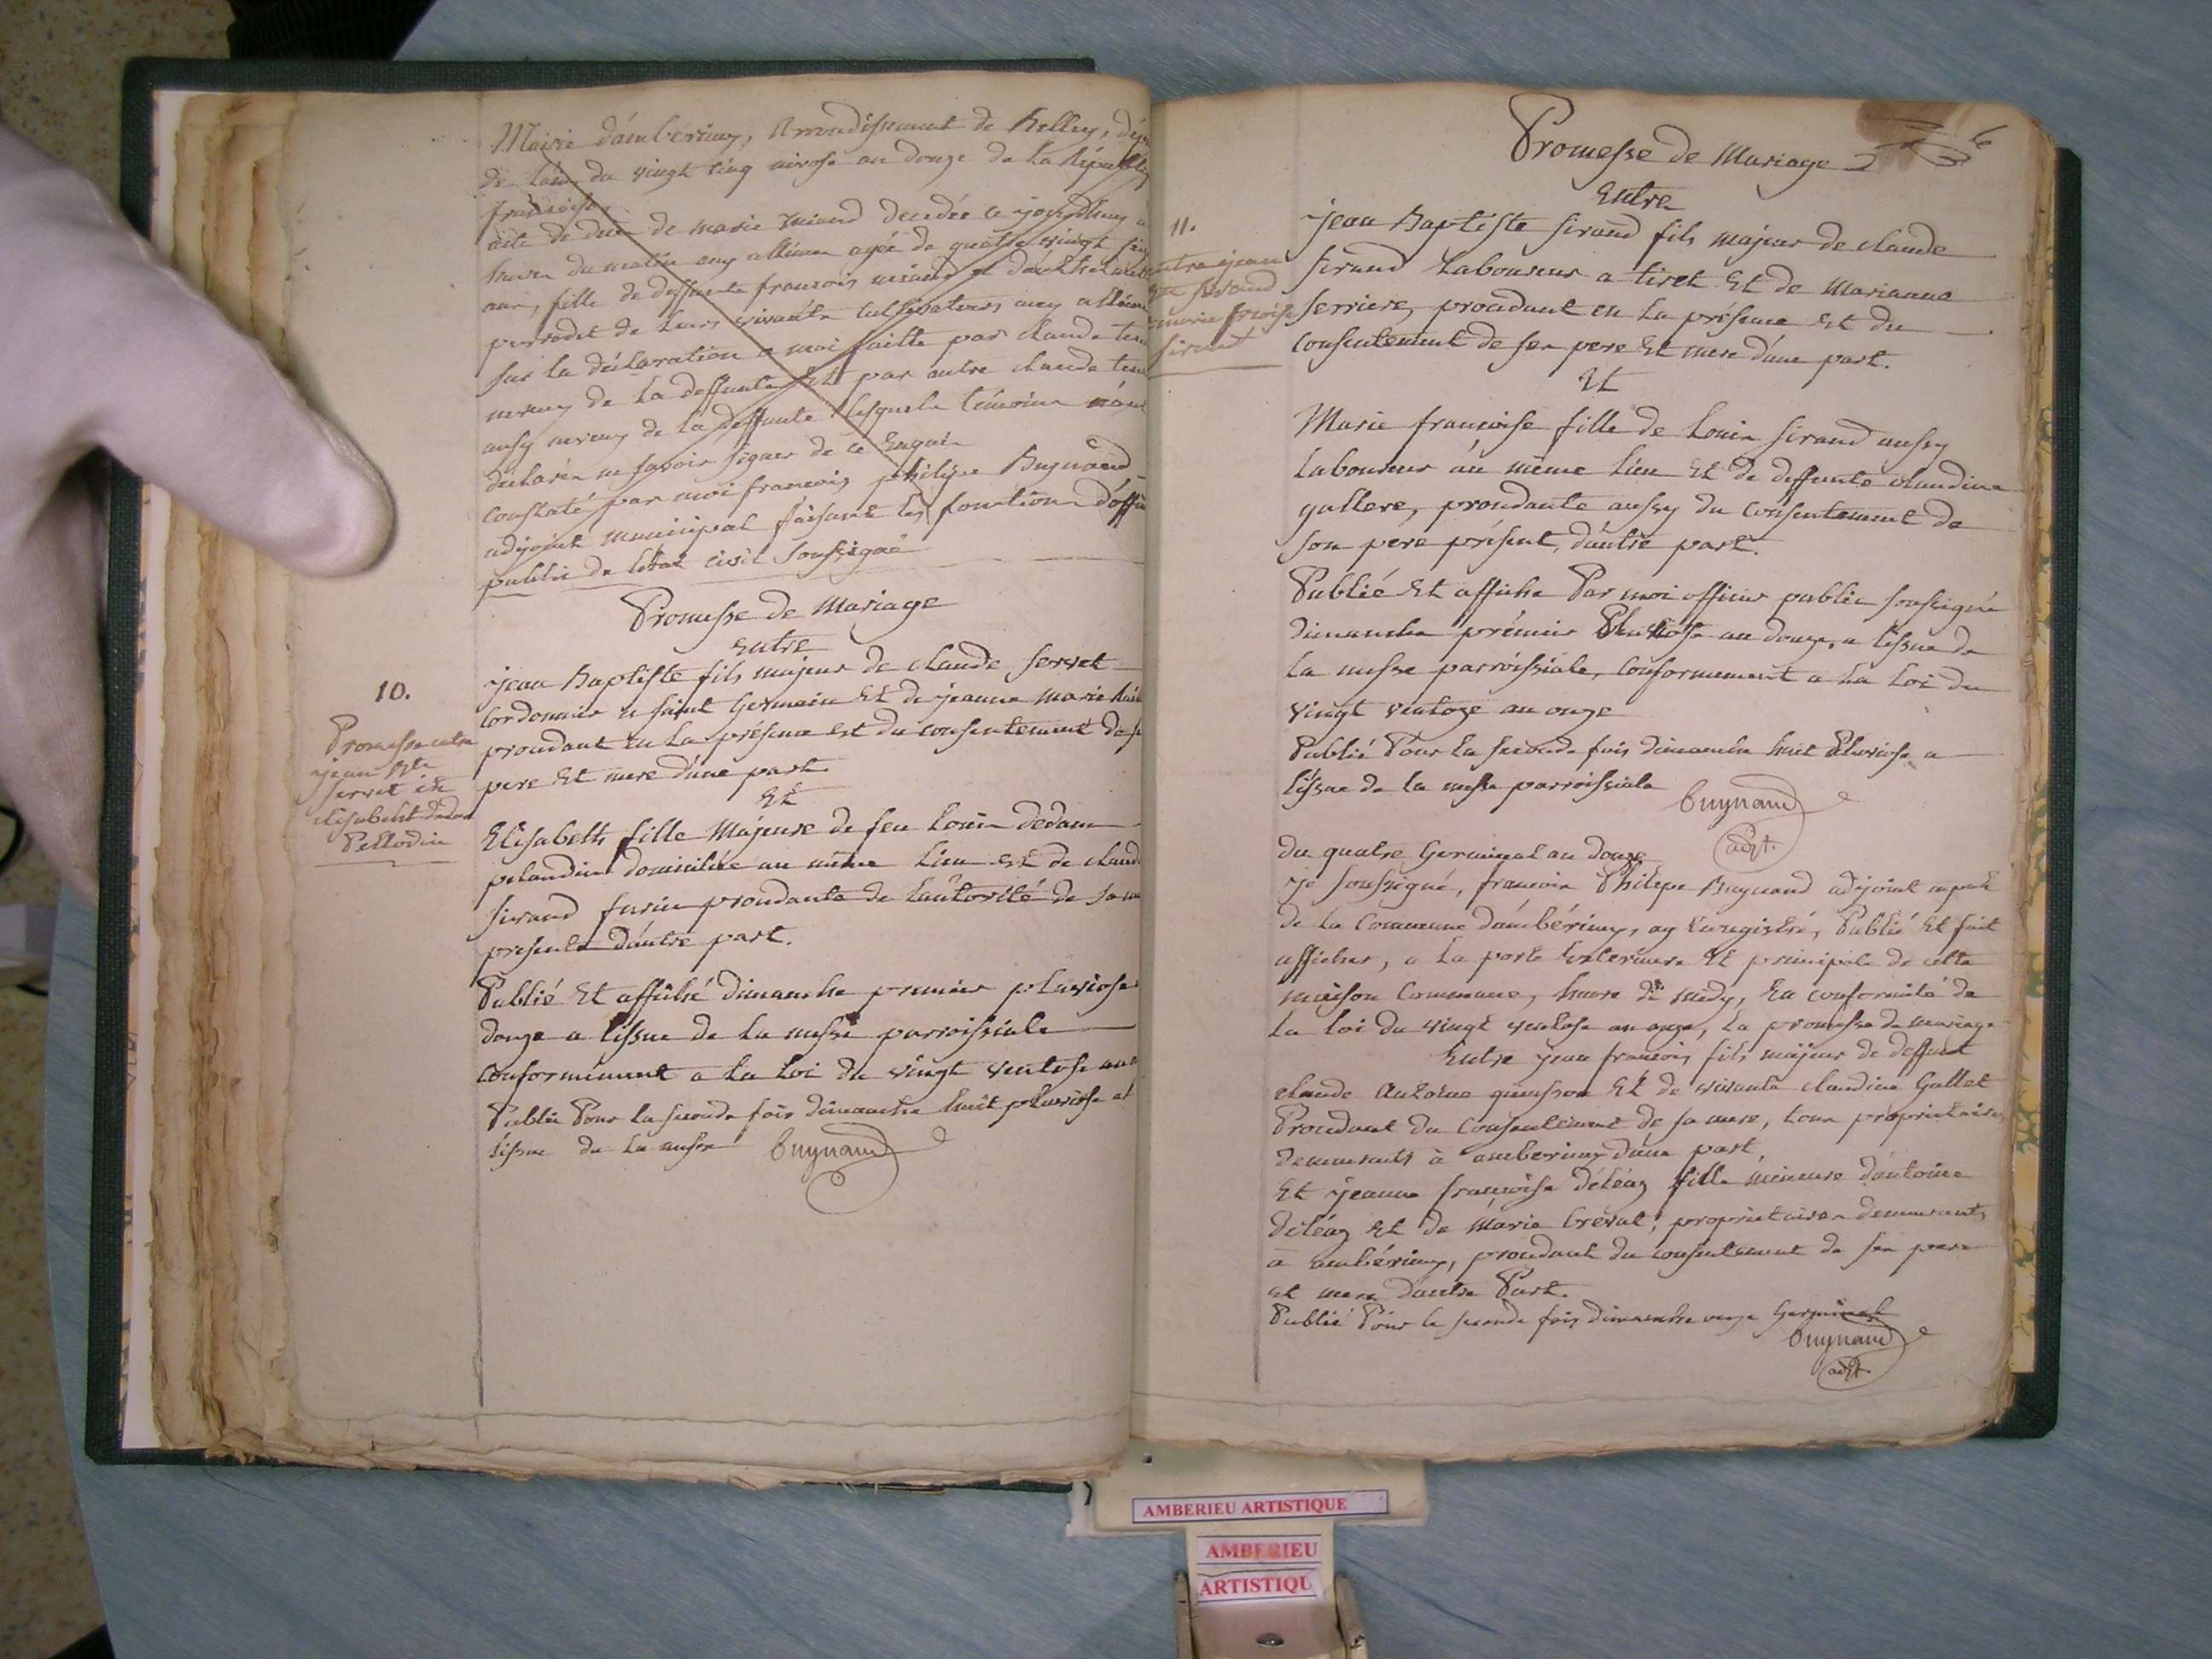 Mairie d'ambérieux, Arrondissement de Belley, dép
de Lain du vingt cinq nivose an douze de la Républi
francoise
acte de deces de marie decedée ce jourdhuy a
heures du matin aux allimes agée de quatre vingt
ans, fille de deffunts francois et
de leurs vivants cultivateurs aux
sur la déclaration a moi faitte par claude
neveux de la deffunte Et par autre claude
aussy neveux de la deffunte lesquels témoins
déclarés ne savoir signer de ce Enquis
Constaté par moi francois philipe Bugnand
adjoint municipal faisant les fonctions d'offi
public de létat civil soussigné
Promesse de Mariage
entre
10.
jean Baptiste fils majeur de claude servet
Cordonnier a saint Germain Et de jeanne marie
procédant en la présence et du consentement de s
pere Et mere dune part.
Promesse entre
jean Bte
servet et
elisabeth dedan
Pellodin
Et
Elisabeth fille Majeure de feu Louis dedan
pelandin domiciliée au même lieu et de claud
sirand procédante de lautorité de sa m
presente dautre part.
Publié Et affiché dimanche premier pluviose
douze a lissue de la messe parroissiale
Conformément a la Loi du vingt ventose an
Publié Pour la seconde fois dimanche huit pluviose a l
lissue de la messe Bugnand
6
Promesse de Mariage
Entre
11.
entre jean
Bte sirand
marie froise
sirand
jean Baptiste sirand fils majeur de claude
sirand Laboureur a tiret Et de Marianne
ferriere, procédant en la présence Et du
Consentement de ses pere Et mere d'une part.
Et
Marie francoise fille de Louis sirand aussy
Laboureur au même lieu Et de deffunte claudine
gullere, procédante aussy du Consentement de
son pere présent, dautre part.
Publié Et affiche Par moi officier public soussigné
dimanche prémier Pluviose an douze, a lissue de
la messe parroissiale, Conformement a la Loi du
vingt ventoze an onze
Publié Pour la seconde fois dimanche huit Pluviose a
lissue de la messe parroissiale
Bugnand
adjt.
du quatre Germinal an douze
je soussigné, francois Philipe Bugnand adjoint
de la Commune dambérieux, ay Enregistré, Publié Et fait
afficher, a la porte Exterieure Et principale de cette
maison Commune, heure de midy, En conformité de
la loi du vingt ventose an onze, la promesse de mariage
Entre jean francois fils majeur de deffunt
claude Antoine quinson Et de vivante claudine Gullet
Procédant du Consentement de sa mere, tous propriétaires
demeurants à amberieux d'une part,
Et jeanne francoise déléaz fille mineure dantoine
déléaz Et de Marie Creval, proprietaires demeurants
a ambérieux, procédant du consentement de ses pere
et mere dautre Part.
Publié Pour la seconde fois dimanche onze Germinal
Bugnand
adjt.
AMBERIEU ARTISTIQUE
AMBERIEU
ARTISTIQU